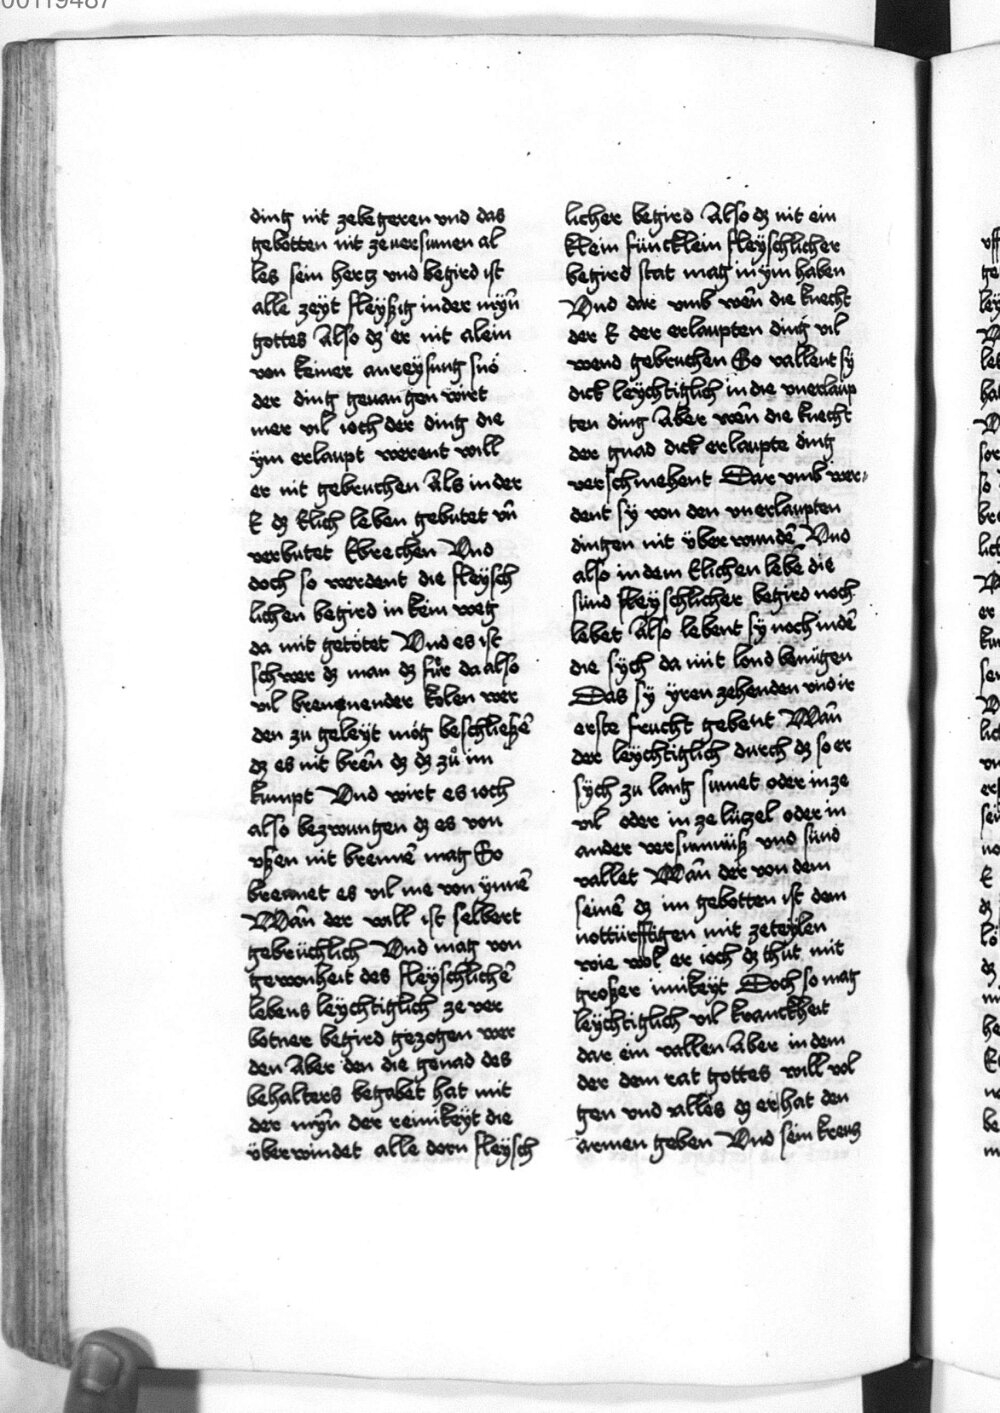 00119487
ding nit zebegeren vnd das
gebotten nit zeuersumen al
les sein hercz vnd begird ist
alle zeÿt fleÿßig in der mÿn̄
gottes Also dz er nit alein
von keiner anreÿsung snö
der ding geuangen wirt
mer vil ioch der ding die
ÿm erlaupt werent will
er nit gebruchen Als in der
E dz Elich leben gebutet vn̄
verbutet Ebrechen Vnd
doch so werdent die fleÿsch
lichen begird in kein weg
da mit getötet Vnd es ist
schwer dz man dz für da also
vil brennender kolen wer
den zu geleÿt mög beschließē
dz es nit bren̄ dz dz zů im
kumpt Vnd wirt es ioch
also bezwungen dz es von
vßen nit brennē mag So
brennet es vil me von ÿnnē
Wan̄ der will ist selbert
gebrüchlich Vnd mag von
gewonheit des fleÿschlichē
lebens leÿchtiglich ze ver
botner begird gezogen wer
den Aber den die genad des
behalters begabet hat mit
der mÿn̄ der reinikeÿt die
überwindet alle dorn fleÿsch
licher begird Also dz nit ein
klein füncklein fleÿschlicher
begird stat mag in ÿm haben
Vnd dar vmb wen̄ die knecht
der E der erlaupten ding vil
wend gebruchen So vallent sÿ
dick leÿchtiglich in die vnerlaup
ten ding Aber wen̄ die knecht
der gnad dick erlaupte ding
verschmehent Dar vmb wer
dent sÿ von den vnerlaupten
dingen nit überwundē Vnd
also in dem Elichen lebē die
sünd fleÿschlicher begird noch
lebet Also lebent sÿ noch in dē
die sÿch da mit lond benügen
Das sÿ ÿren zehenden vnd ir
erste frucht gebent Wan̄
der leÿchtiglich durch dz so er
sÿch zu lang sumet oder in ze
vil oder in ze lüczel oder in
ander versumnüß vnd sünd
vallet Wan̄ der von dem
seinē dz im gebotten ist dem
nottürfftigen mit zeteÿlen
wie wol er ioch dz thut mit
großer inikeÿt Doch so mag
leÿchtiglich vil kranckheit
dar ein vallen Aber in dem
der dem rat gottes will vol
gen vnd alles dz er hat den
armen geben Vnd sein kreucz